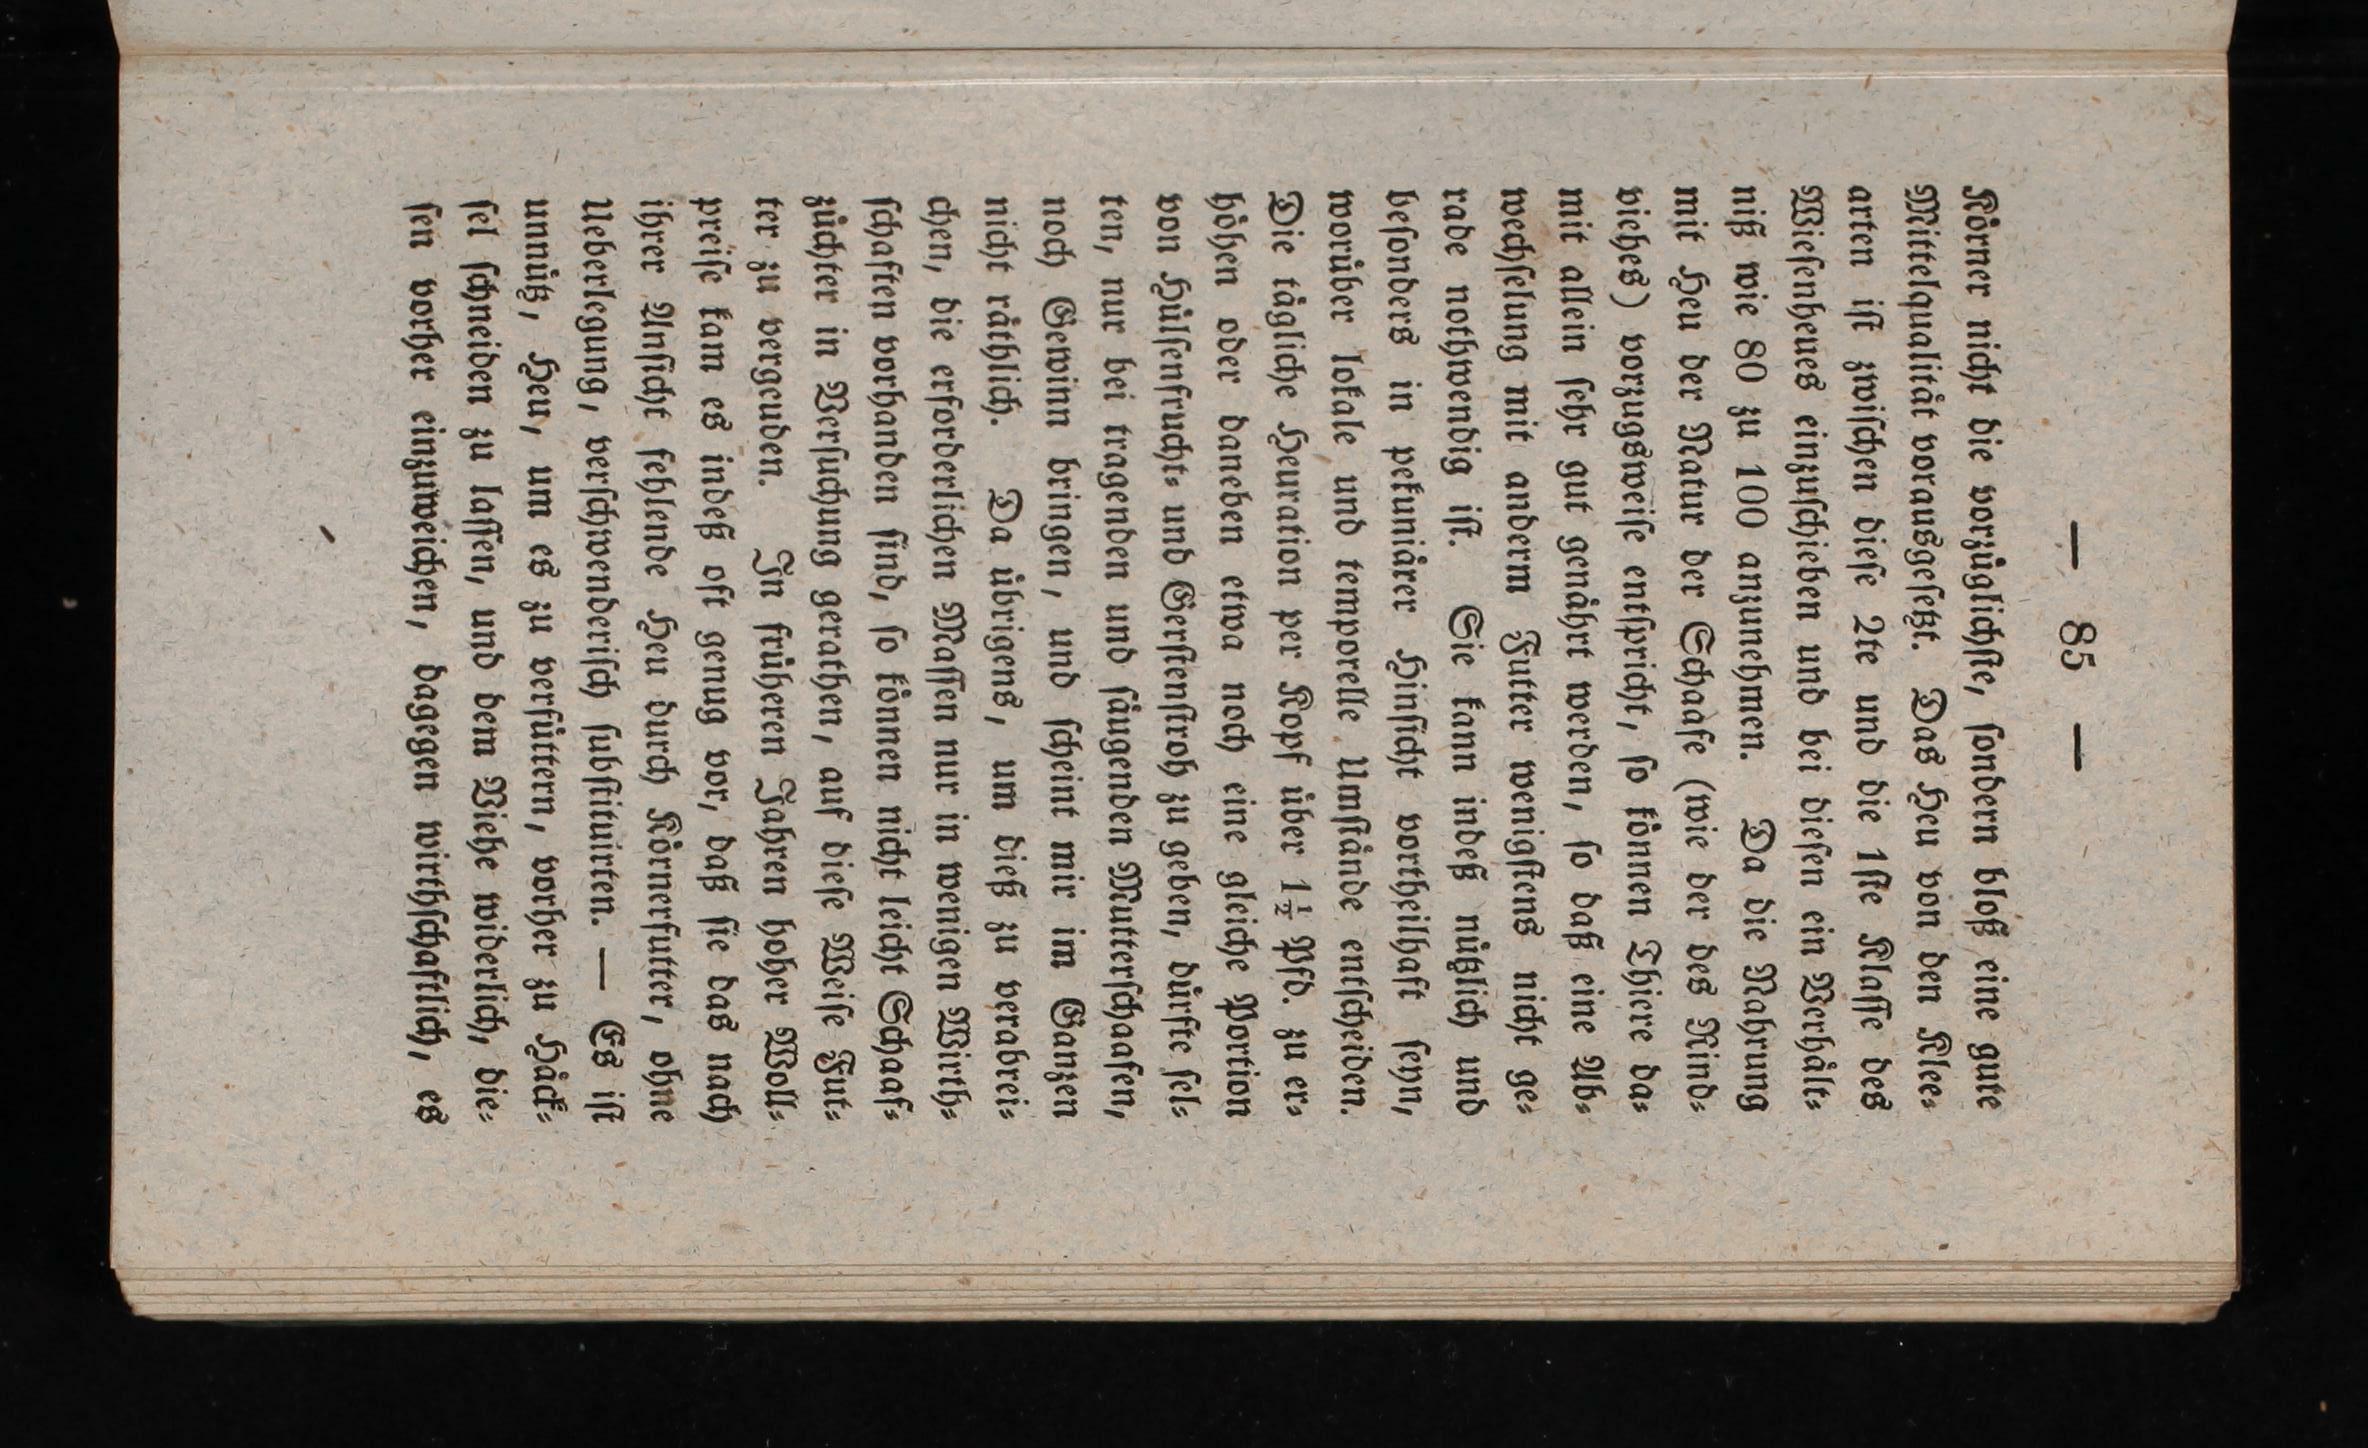 — 85 —
Körner nicht die vorzüglichſte, ſondern bloß eine gute
Mittelqualität vorausgeſetzt. Das Heu von den Klee⸗
arten iſt zwiſchen dieſe 2te und die 1ſte Klaſſe des
Wieſenheues einzuſchieben und bei dieſen ein Verhält⸗
niß wie 80 zu 100 anzunehmen. Da die Nahrung
mit Heu der Natur der Schaafe (wie der des Rind⸗
viehes) vorzugsweiſe entſpricht, ſo können Thiere da⸗
mit allein ſehr gut genährt werden, ſo daß eine Ab⸗
wechſelung mit anderm Futter wenigſtens nicht ge⸗
rade nothwendig iſt. Sie kann indeß nützlich und
beſonders in pekuniärer Hinſicht vortheilhaft ſeyn,
worüber lokale und temporelle Umſtände entſcheiden.
Die tägliche Heuration per Kopf über 1½ Pfd. zu er⸗
höhen oder daneben etwa noch eine gleiche Portion
von Hülſenfrucht⸗ und Gerſtenſtroh zu geben, dürfte ſel⸗
ten, nur bei tragenden und ſäugenden Mutterſchaafen,
noch Gewinn bringen, und ſcheint mir im Ganzen
nicht räthlich. Da übrigens, um dieß zu verabrei⸗
chen, die erforderlichen Maſſen nur in wenigen Wirth⸗
ſchaften vorhanden ſind, ſo können nicht leicht Schaaf⸗
züchter in Verſuchung gerathen, auf dieſe Weiſe Fut⸗
ter zu vergeuden. In früheren Jahren hoher Woll⸗
preiſe kam es indeß oft genug vor, daß ſie das nach
ihrer Anſicht fehlende Heu durch Körnerfutter, ohne
Ueberlegung, verſchwenderiſch ſubſtituirten. — Es iſt
unnütz, Heu, um es zu verfüttern, vorher zu Häck⸗
ſel ſchneiden zu laſſen, und dem Viehe widerlich, die⸗
ſen vorher einzuweichen, dagegen wirthſchaftlich, es